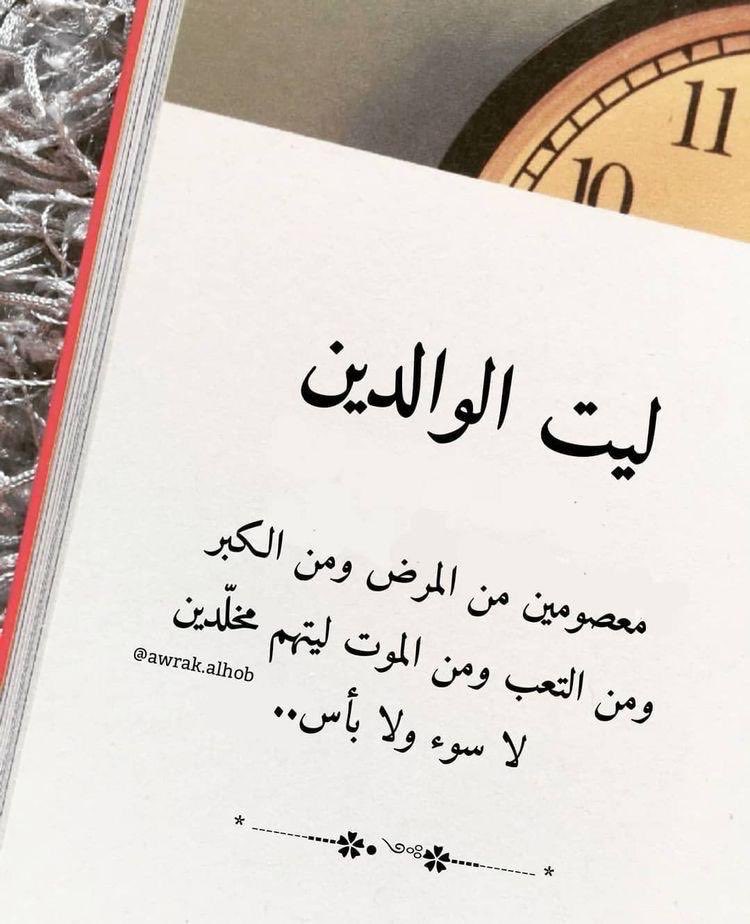 11
10
ليت الوالدين
معصومين من المرض ومن الكبر
ومن التعب ومن الموت ليتهم مخلّدين
@awrak.alhob
لا سوء ولا بأس..